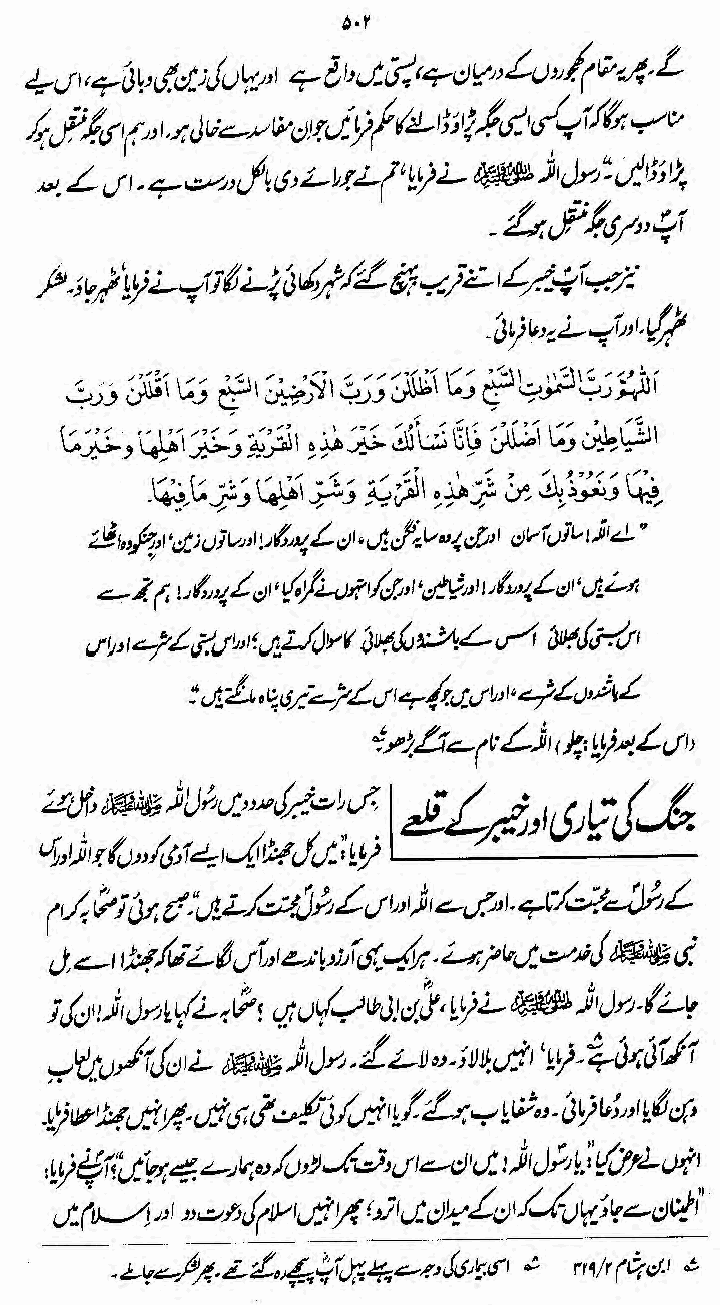 ۵۰۲
گے۔ پھر یہ مقام کھجوروں کے درمیان ہے، پستی میں واقع ہے اور یہاں کی زمین بھی وبائی ہے، اس لیے
مناسب ہوگا کہ آپ کسی ایسی جگہ پڑاؤ ڈالنے کا حکم فرمائیں جو ان مفاسد سے خالی ہو۔ اور ہم اسی جگہ منتقل ہو کر
پڑاؤ ڈالیں۔" رسول اللہ ﷺ نے فرمایا، تم نے جو رائے دی بالکل درست ہے۔ اس کے بعد
آپؐ دوسری جگہ منتقل ہو گئے۔
نیز جب آپؐ خیبر کے اتنے قریب پہنچ گئے کہ شہر دکھائی پڑنے لگا تو آپ نے فرمایا ٹھہر جاؤ۔ لشکر
ٹھہر گیا۔ اور آپ نے یہ دعا فرمائی۔
اَللّٰهُمَّ رَبَّ السَّمٰوٰتِ السَّبْعِ وَمَا اَظْلَلْنَ وَرَبَّ الْاَرْضِيْنَ السَّبْعِ وَمَا اَقْلَلْنَ وَرَبَّ
الشَّيَاطِيْنِ وَمَا اَضْلَلْنَ فَاِنَّا نَسْأَلُكَ خَيْرَ هٰذِهِ الْقَرْيَةِ وَخَيْرَ اَهْلِهَا وَخَيْرَ مَا
فِيْهَا وَنَعُوْذُ بِكَ مِنْ شَرِّ هٰذِهِ الْقَرْيَةِ وَشَرِّ اَهْلِهَا وَشَرِّ مَا فِيْهَا۔
"اے اللہ! ساتوں آسمان اور جن پر وہ سایہ فگن ہیں، ان کے پروردگار! اور ساتوں زمین' اور جنکو وہ اٹھائے
ہوئے ہیں' ان کے پروردگار! اور شیاطین' اور جن کو انہوں نے گمراہ کیا' ان کے پروردگار! ہم تجھ سے
اس بستی کی بھلائی اس کے باشندوں کی بھلائی کا سوال کرتے ہیں؛ اور اس بستی کے شر سے اور اس
کے باشدوں کے شر سے، اور اس میں جو کچھ ہے اس کے شر سے تیری پناہ مانگتے ہیں۔"
(اس کے بعد فرمایا: چلو) اللہ کے نام سے آگے بڑھو
جنگ کی تیاری اور خیبر کے قلعے
جس رات خیبر کی حدود میں رسول اللہ ﷺ داخل ہوئے
فرمایا: "میں کل جھنڈا ایک ایسے آدمی کو دوں گا جو اللہ اور اس
کے رسولؐ سے محبت کرتا ہے۔ اور جس سے اللہ اور اس کے رسولؐ محبت کرتے ہیں"۔ صبح ہوئی تو صحابہ کرام
نبی ﷺ کی خدمت میں حاضر ہوئے۔ ہر ایک یہی آرزو باندھے اور آس لگائے تھا کہ جھنڈا اسے مل
جائے گا۔ رسول اللہ ﷺ نے فرمایا، علیؓ بن ابی طالب کہاں ہیں؟ صحابہ نے کہا یا رسول اللہ! ان کی تو
آنکھ آئی ہوئی ہے۔ فرمایا' انہیں بلا لاؤ۔ وہ لائے گئے۔ رسول اللہ ﷺ نے ان کی آنکھوں میں لعابِ
دہن لگایا اور دُعا فرمائی۔ وہ شفایاب ہو گئے۔ گویا انہیں کوئی تکلیف تھی ہی نہیں۔ پھر انہیں جھنڈا عطا فرمایا۔
انہوں نے عرض کیا: "یا رسول اللہ! میں ان سے اس وقت تک لڑوں کہ وہ ہمارے جیسے ہو جائیں"؟ آپؐ نے فرمایا:
"اطمینان سے جاؤ یہاں تک کہ ان کے میدان میں اترو؛ پھر انہیں اسلام کی دعوت دو اور اسلام میں
ابن ہشام ۳۲۹/۲ اسی بیماری کی وجہ سے پہلے پہل آپؓ پیچھے رہ گئے تھے۔ پھر لشکر سے جا ملے۔